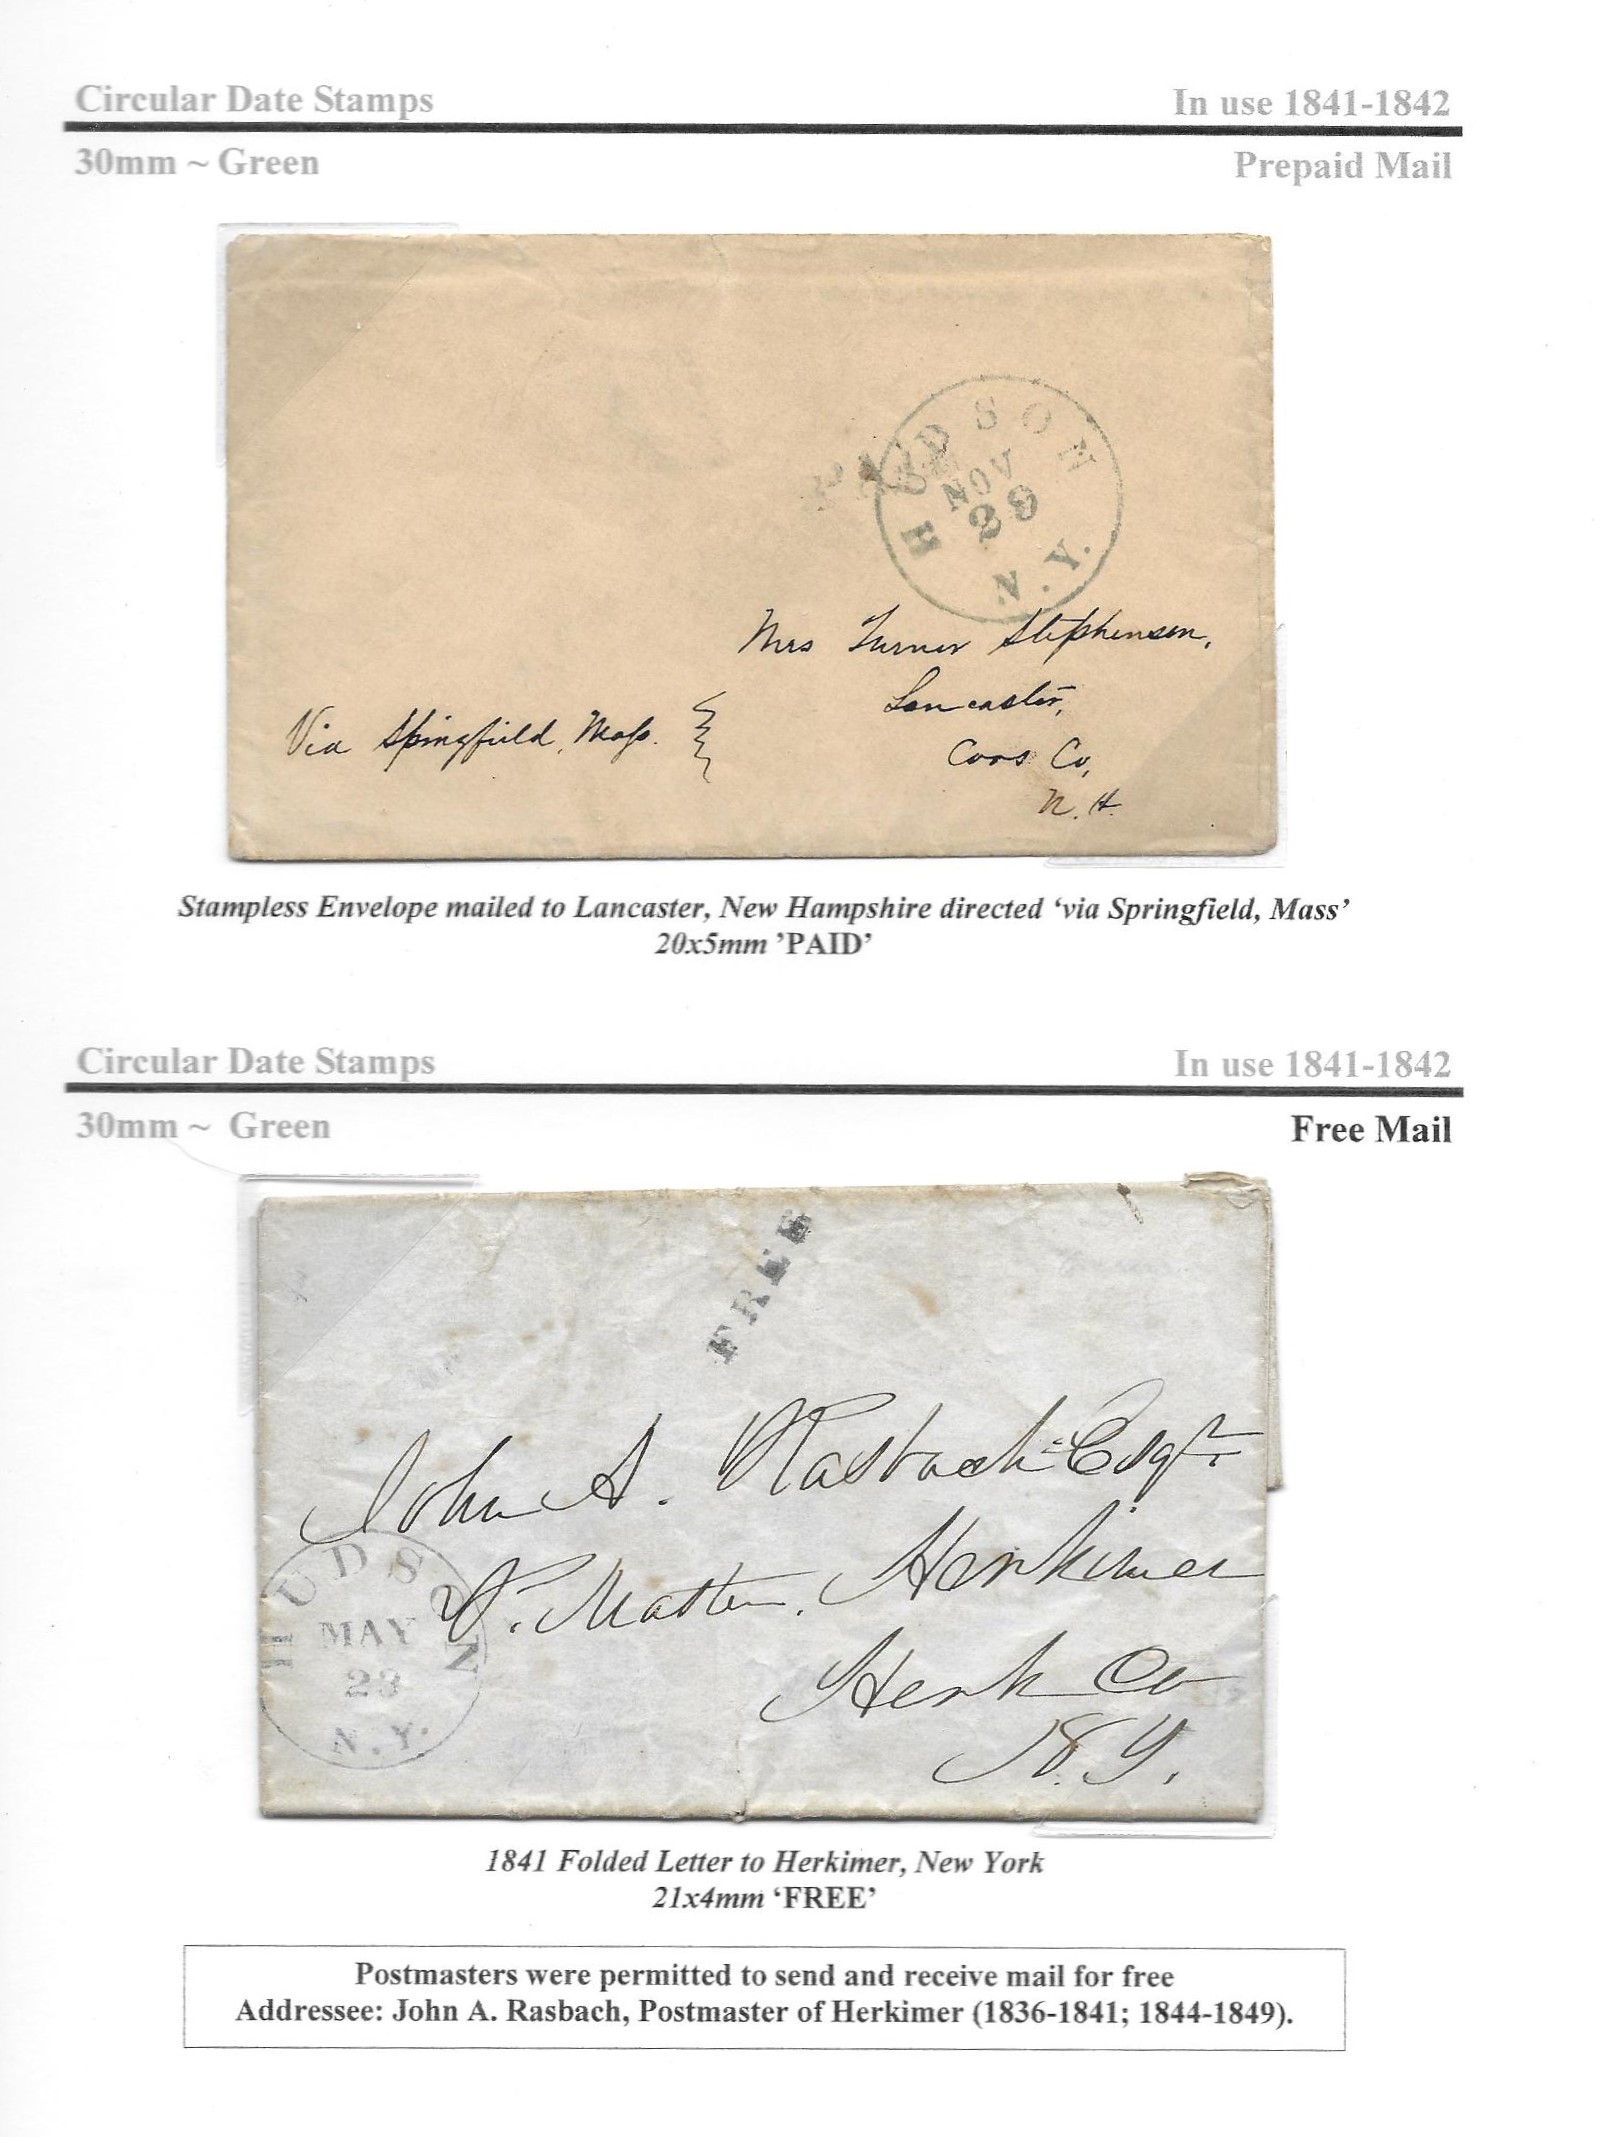 Circular Date Stamps
In use 1841-1842
30mm ~ Green
Prepaid Mail
PAID
HUDSON
NOV
29
N.Y.
Mrs Turner Stephenson,
Lancaster,
Via Springfield, Mass.
Coos Co,
N. H.
Stampless Envelope mailed to Lancaster, New Hampshire directed ‘via Springfield, Mass’
20x5mm ’PAID’
Circular Date Stamps
In use 1841-1842
30mm ~ Green
Free Mail
FREE
John A. Rasbach Esqr.
P. Master, Herkimer
Herk Co
N.Y.
HUDSON
MAY
23
N.Y.
1841 Folded Letter to Herkimer, New York
21x4mm ‘FREE’
Postmasters were permitted to send and receive mail for free
Addressee: John A. Rasbach, Postmaster of Herkimer (1836-1841; 1844-1849).